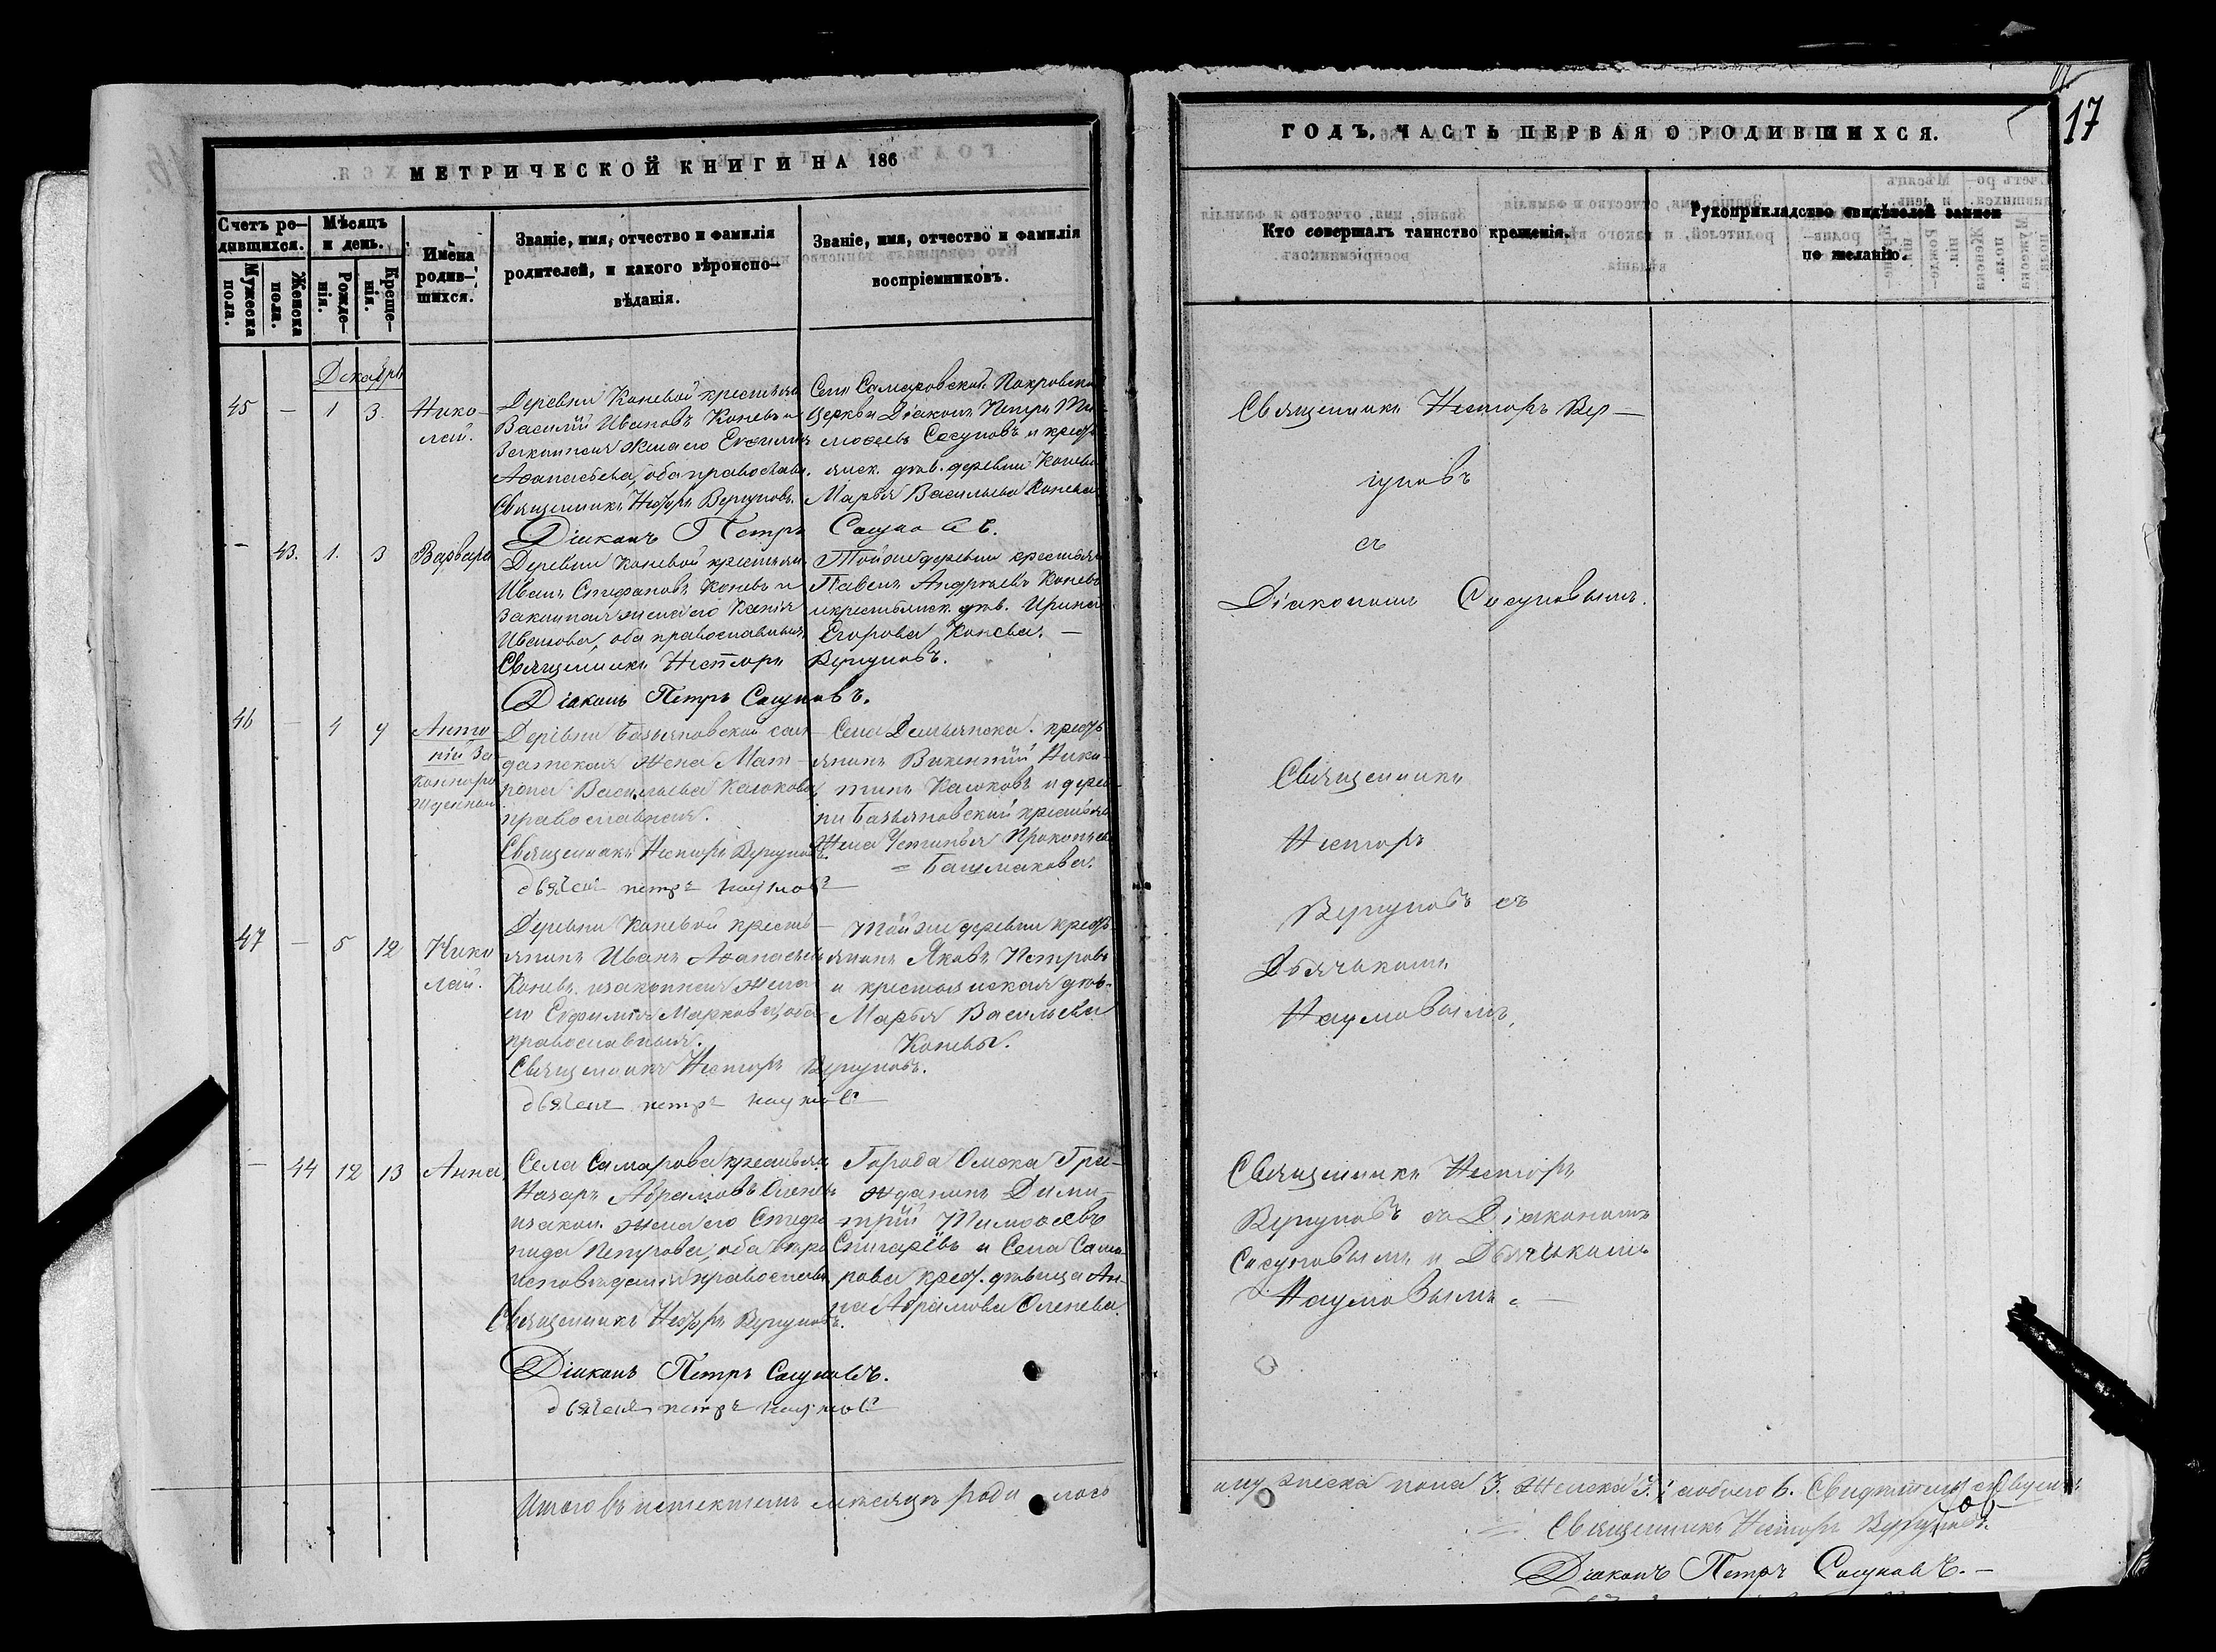 17
МЕТРИЧЕСКОЙ КНИГИ НА 186
ГОДЪ, ЧАСТЬ ПЕРВАЯ О РОДИВШИХСЯ.
Счетъ ро-
дившихся.
Мужеска
пола.
Женска
пола.
Мѣсяцъ
и день.
Рожде-
нія.
Креще-
нія.
Имена
родив-
шихся.
Званіе, имя, отчество и фамилія
родителей, и какого вѣроиспо-
вѣданія.
Званіе, имя, отчество и фамилія
воспріемниковъ.
Кто совершалъ таинство крещенія.
Рукоприкладство свидѣтелей записи
по желанію.
Декабрь
45 — 1 3. Нико-
лай.
Деревни Коневой крестьян
Василій Ивановъ Коневъ и
Законная жена его Евфимія
Аѳанасьева, оба православн.
Священникъ Несторъ Вергуновъ.
Діаконъ Петръ Сосуновъ.
Села Самаровской Покровской
Церкви Діаконъ Петръ Ти-
моѳеевъ Сосуновъ и крестья
янск. дѣв. деревни Коневой
Марья Васильева Конева
Священникъ Несторъ Вер-
гуновъ
съ
Діакономъ Сосуновымъ.
— 43. 1. 3 Варвара
Деревни Коневой крестьян
Иванъ Стефановъ Коневъ и
Законная жена его Ксенія
Иванова, оба православныя
Священникъ Несторъ Вергуновъ.
Діаконъ Петръ Сосуновъ.
Той же деревни крестьян
Павелъ Андреевъ Коневъ
и крестьянск. дѣв. Ирина
Егорова Конева. —
46 — 4 9 Анто
ній За
коннoро
жденный
Деревни Базьяновской сол-
датская жена Мат-
рона Васильева Каюкова,
православная.
Священникъ Несторъ Вергуновъ.
дьячекъ петръ наумовъ
Села Демьянска крестья
янинъ Викентій Ники-
тинъ Каюковъ и дерев-
ни Базьяновской крестьян
Жена Устинья Прокопьева
= Башмакова.
Священникъ
Несторъ
Вергуновъ съ
Дьячькомъ
Наумовымъ.
47 — 5 12 Нико
лай.
Деревни Коневой кресть-
янинъ Иванъ Аѳанасьевъ
Коневъ и законная жена
его Евфимія Маркова, оба
православныя.
Священникъ Несторъ Вергуновъ.
дьячекъ петръ наумовъ
Той же деревни кресть
янинъ Яковъ Петровъ
и крестьянская дѣв.
Марья Васильева
Коневы.
— 44 12 13 Анна
Села Самарова крестьян.
Назаръ Абрамовъ Оленевъ
и закон. жена его Стефа
нида Петрова, оба вѣро
исповѣданія православн.
Священникъ Несторъ Вергуновъ.
Діаконъ Петръ Сосуновъ.
дьячекъ петръ наумовъ
Города Омска Гра-
жданинъ Дими-
трій Тимоѳеевъ
Снигарёвъ и Села Сама
рова крест. дѣвица Ан-
на Абрамова Оленева.
Священникъ Несторъ
Вергуновъ съ Діакономъ
Сосуновымъ и Дьячькомъ
Наумовымъ. —
Итого въ истекшемъ мѣсяцѣ родилось
мужеска пола 3. Женска 3. и обоего 6.
Священникъ Несторъ Вергуновъ.
Діаконъ Петръ Сосуновъ. —